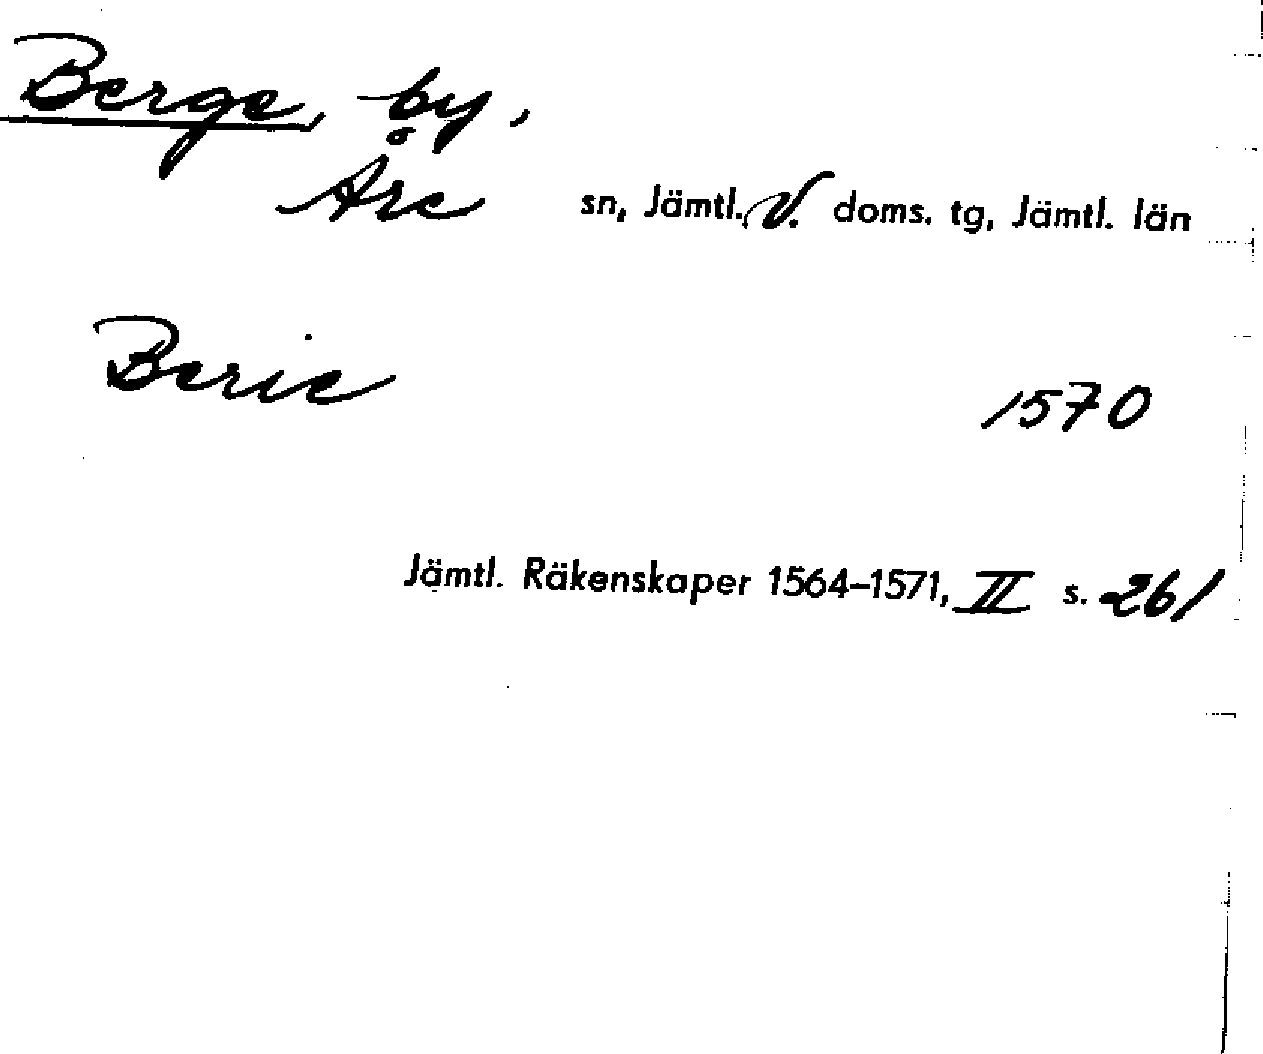 Berge, by,
Åre sn, Jämtl. V. doms. tg, Jämtl. län
Berie
1570
Jämtl. Räkenskaper 1564–1571, II s. 261